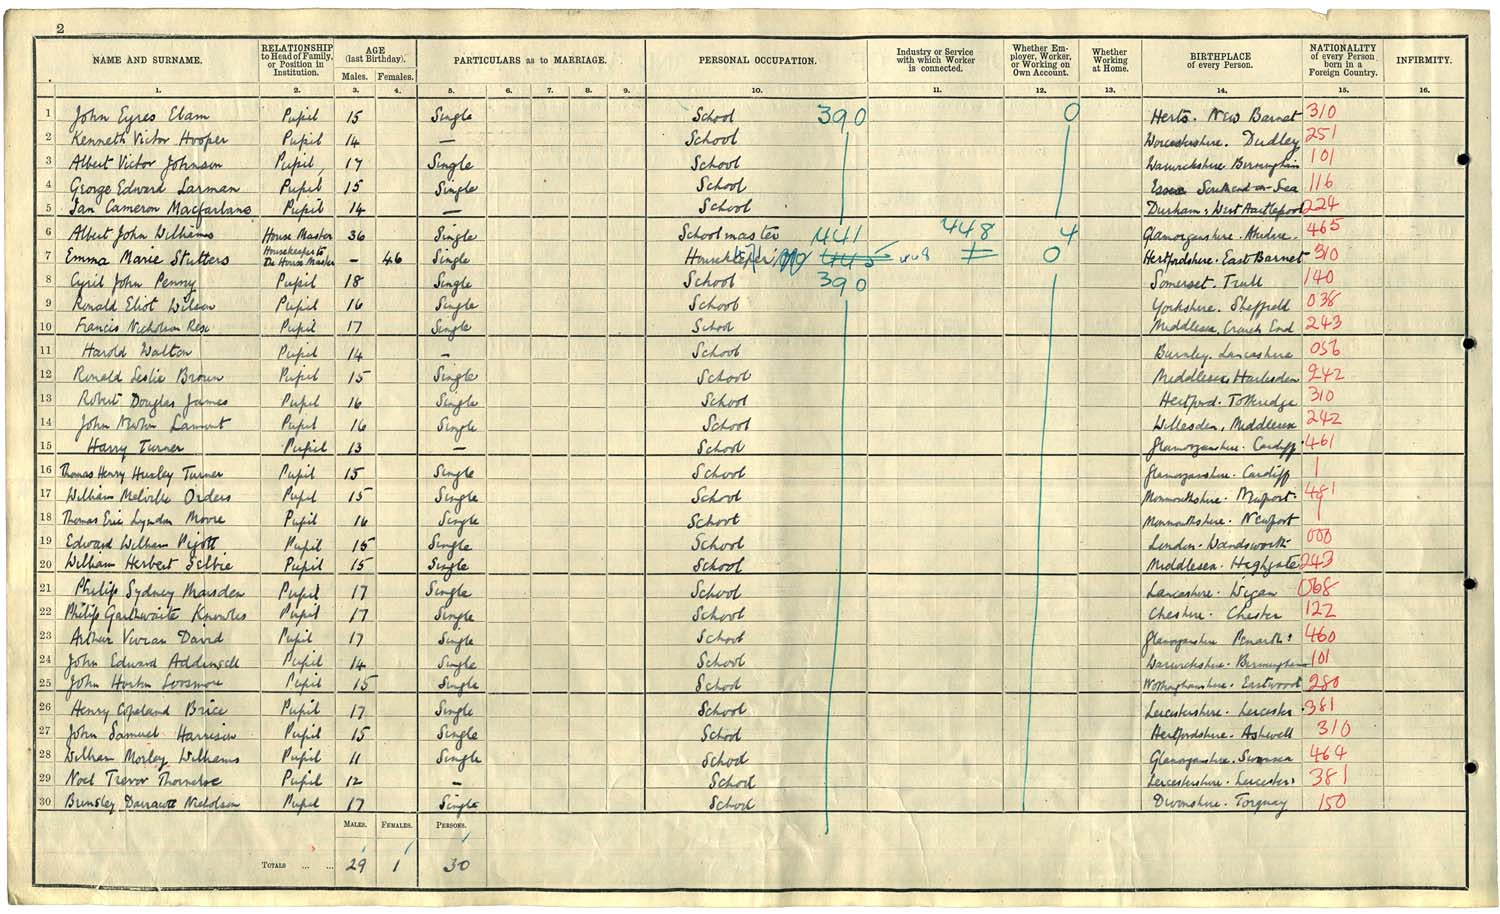 2
NAME AND SURNAME. RELATIONSHIP to Head of Family, or Position in Institution. AGE (last Birthday). Males. Females. PARTICULARS as to MARRIAGE. PERSONAL OCCUPATION. Industry or Service with which Worker is connected. Whether Employer, Worker, or Working on Own Account. Whether Working at Home. BIRTHPLACE of every Person. NATIONALITY of every Person born in a Foreign Country. INFIRMITY.
1. 2. 3. 4. 5. 6. 7. 8. 9. 10. 11. 12. 13. 14. 15. 16.
1 John Eyres Pupil 15 Single School 390 0 Herts. New Barnet 310
2 Kenneth Victor Hooper Pupil 14 — School Worcestershire. Dudley 251
3 Albert Victor Johnson Pupil 17 Single School Warwickshire Birmingham 101
4 George Edward Larman Pupil 15 Single School Essex Southend-on-Sea 116
5 Ian Cameron Macfarlane Pupil 14 — School Durham, West Hartlepool 224
6 Albert John Williams House Master 36 Single Schoolmaster 441 448 4 Glamorganshire. 465
7 Emma Marie Stutters Housekeeper to The House Master — 46 Single Housekeeper 445 0 Hertfordshire. East Barnet 310
8 Cyril John Penny Pupil 18 Single School 390 Somerset. Trull 140
9 Ronald Eliot Wilson Pupil 16 Single School Yorkshire. Sheffield 038
10 Francis Nicholson Pupil 17 Single School Middlesex, Crouch End 243
11 Harold Walton Pupil 14 — School Burnley. Lancashire 056
12 Ronald Leslie Brown Pupil 15 Single School Middlesex, Harlesden 242
13 Robert Douglas James Pupil 16 Single School Hertford. Totteridge 310
14 John Lamont Pupil 16 Single School Willesden, Middlesex 242
15 Harry Turner Pupil 13 — School Glamorganshire. Cardiff 461
16 Thomas Henry Huxley Turner Pupil 15 Single School Glamorganshire. Cardiff
17 William Melville Orders Pupil 15 Single School Monmouthshire. Newport. 481
18 Thomas Eric Lyndon Moore Pupil 16 Single School Monmouthshire. Newport
19 Edward William Pigott Pupil 15 Single School London. Wandsworth 000
20 William Herbert Selbie Pupil 15 Single School Middlesex. Highgate 243
21 Philip Sydney Marsden Pupil 17 Single School Lancashire. Wigan 068
22 Philip Garthwaite Knowles Pupil 17 Single School Cheshire. Chester 122
23 Arthur Vivian David Pupil 17 Single School Glamorganshire Penarth 460
24 John Edward Addinsell Pupil 14 Single School Warwickshire. Birmingham 101
25 John Horton Loosmore Pupil 15 Single School Nottinghamshire. Eastwood 280
26 Henry Copeland Brice Pupil 17 Single School Leicestershire. Leicester 381
27 John Samuel Harrison Pupil 15 Single School Hertfordshire. Ashwell 310
28 William Morley Williams Pupil 11 Single School Glamorganshire. Swansea 464
29 Noel Trevor Pupil 12 — School Leicestershire. Leicester 381
30 Brinsley Nicholson Pupil 17 Single School Devonshire. Torquay 150
MALES. FEMALES. PERSONS.
TOTALS ... ... 29 1 30